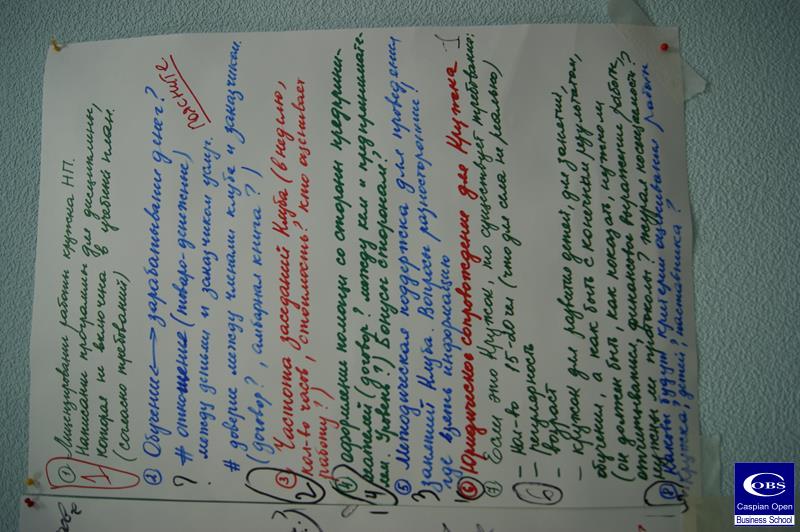 ① Лицензировании работы кружка НП.
Написании программы для дисциплины,
которая не включена в учебный план.
(согласно требований)
1
② Обучение → зарабатывания денег?
ПОЯСНИТЕ
? # отношение (товаро-денежные)
между детьми и заказчиком услуг.
# доверие между членами клуба и заказчиком.
(договор?, амбарная книга?)
③ Частота заседаний Клуба (в неделю,
кол-во часов, стоимость? кто оценивает
работу?)
2
④ оформление помощи со стороны предприни-
мателей (договор? между кем и предпринимате-
лем. Уровень?) Бонусы сторонам?
14
⑤ методическая поддержка для проведения
занятий Клуба. Вопросы разносторонние!
где взять информацию
3
⑥ Юридическое сопровождение для Кружка
⑦ Если это Кружок, но существует требования:
- кол-во 15-20 чел (что для села не реально)
- регулярность
- возраст
- кружок для развития детей, для занятий,
обучения, а как быть с конечным результатом,
(он должен быть, как показать, путем
отчитывания, финансовы выражении работы,
нужны ли протоколы? журнал посещаемости?)
6
⑧ Каковы будут критерии оценивания работы
Кружка, детей, наставника?
:3)
COBS
Caspian Open
Business School